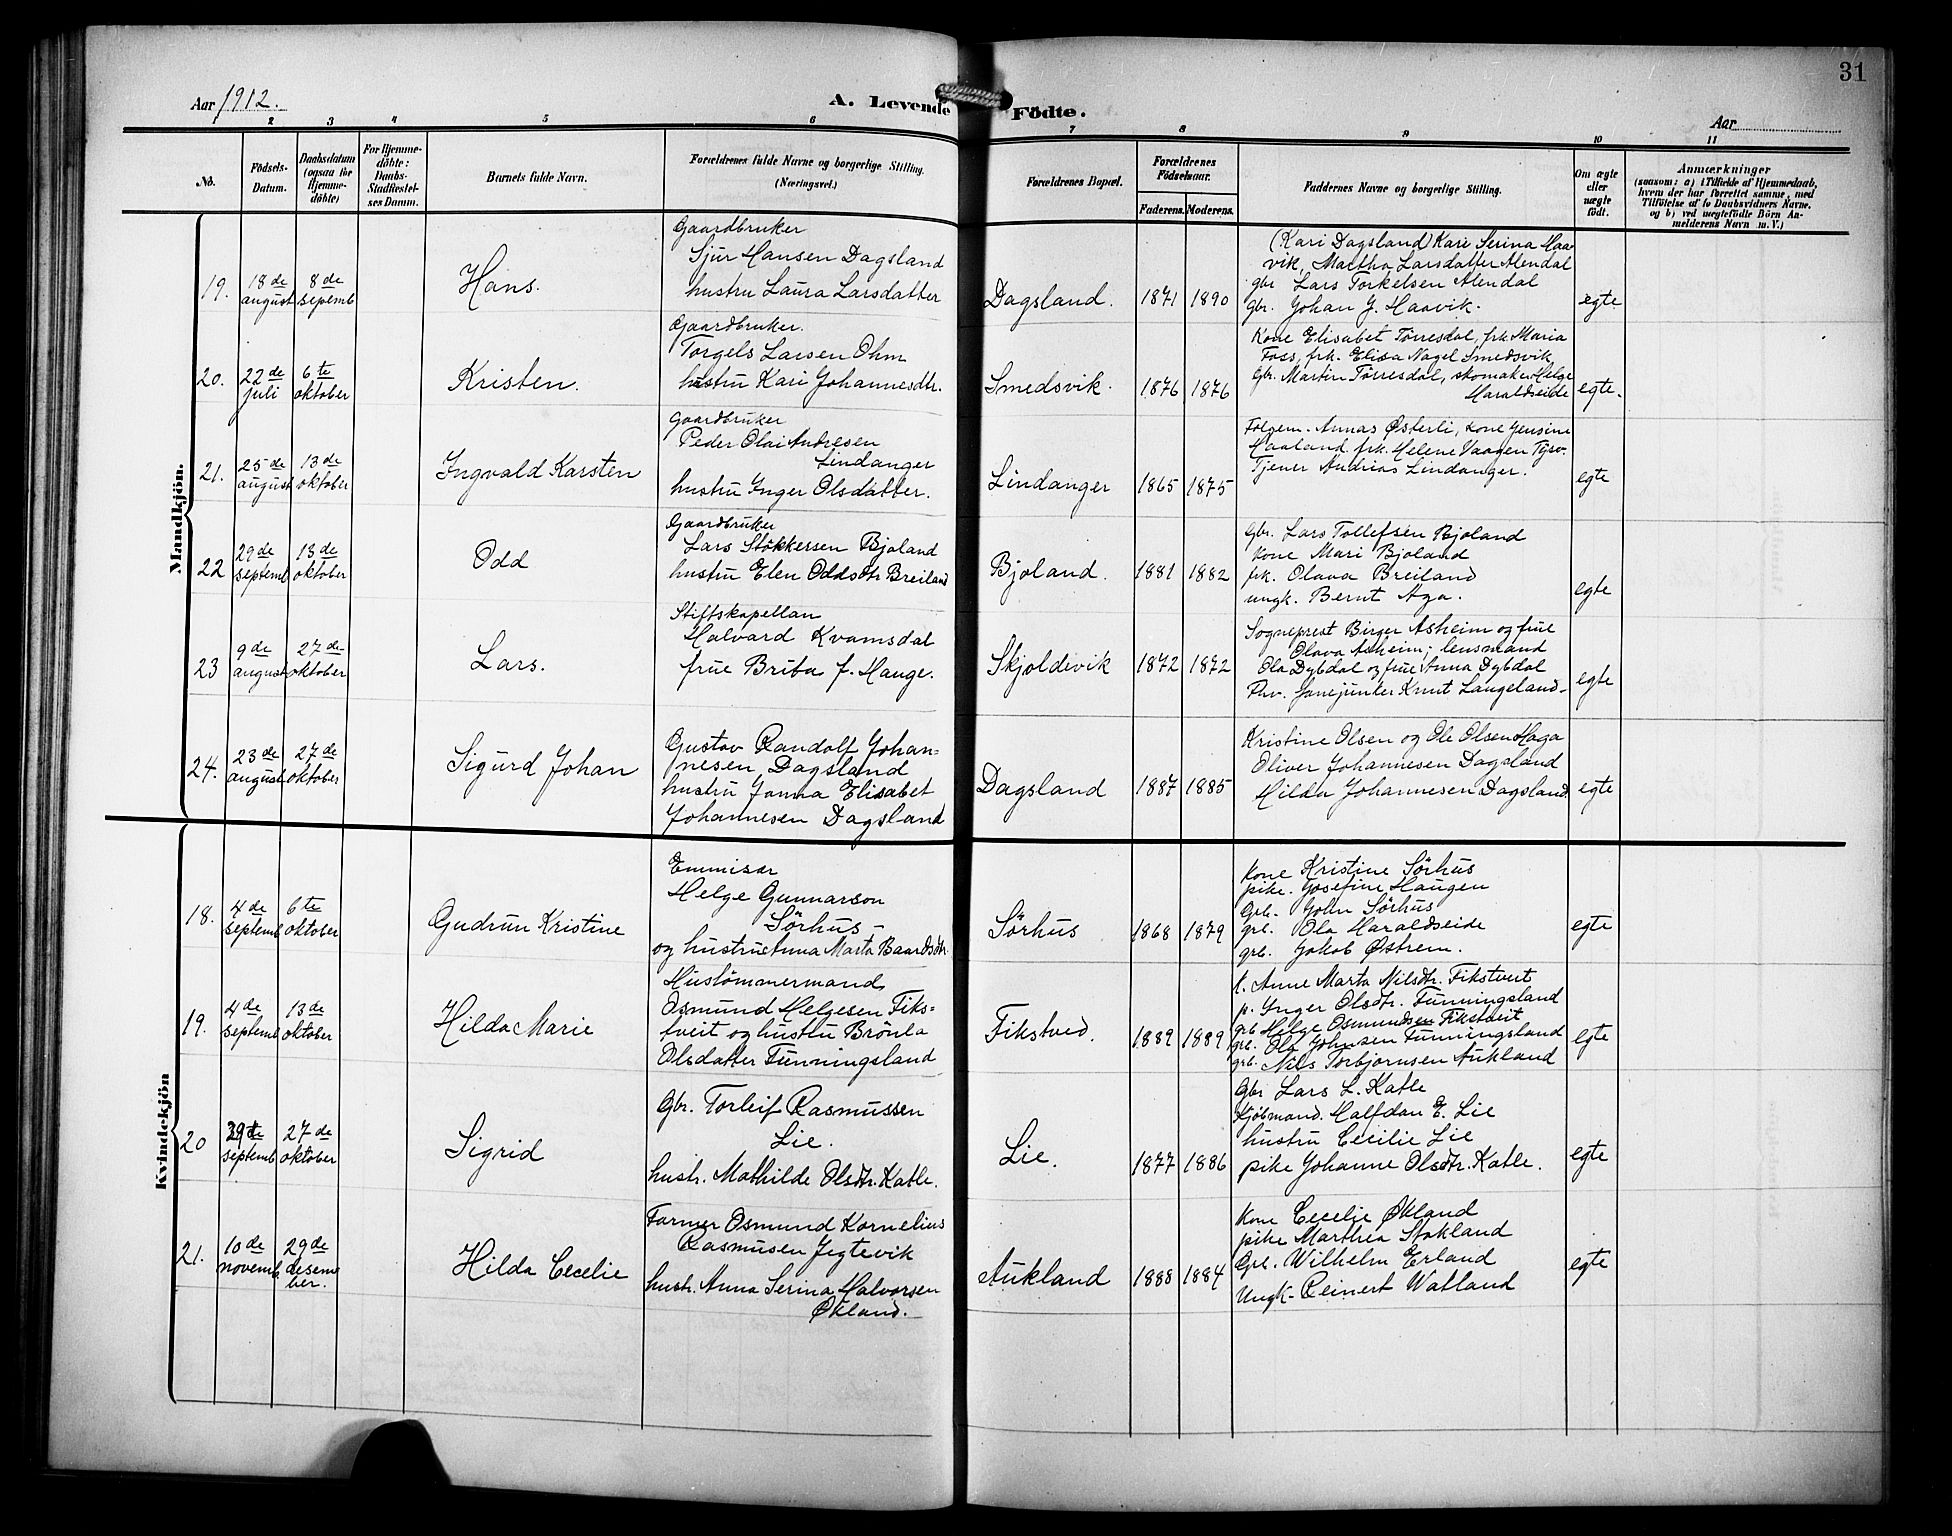 31
Aar 1912.
A. Levende Födte.
Aar
2 3 4 5 6 7 8 9 10 11
No.
Födsels-
Datum.
Daabsdatum
(ogsaa for
Hjemme-
döbte)
For Hjemme-
döbte:
Daabs-
Stadfæstel-
ses Datum.
Barnets fulde Navn.
Forældrenes fulde Navne og borgerlige Stilling.
(Næringsvei.)
Forældrenes Bopæl.
Forældrenes
Födselsaar.
Faderens. Moderens.
Faddernes Navne og borgerlige Stilling.
Om ægte
eller
uægte
födt.
Anmærkninger
(saasom: a) i Tilfælde af Hjemmedaab,
hvem der har forrettet samme, med
Tilföielse af to Daabsvidners Navne.
og b) ved uægtefödte Börn An-
melderens Navn m. V.)
Mandkjön.
19.
18de
august
8de
septemb
Hans.
Gaardbruker
Sjur Hansen Dagsland
hustru Laura Larsdatter
Dagsland.
1871 1890
(Kari Dagsland) Kari Serina Haa-
vik, Martha Larsdatter Alendal
gbr Lars Torkelsen Alendal
Gbr. Johan J. Haavik.
egte
20.
22de
juli
6te
oktober
Kristen.
Gaardbruker.
Torgels Larsen Ohm
hustru Kari Johannesdtr.
Smedsvik.
1876 1876
Kone Elisabet Tørresdal, frk. Maria
Foss, frk. Elisa Nagel Smedsvik,
Gbr. Martin Tørresdal, skomaker Helge
Haraldseide
egte.
21.
25de
august
13de
oktober
Ingvald Karsten
Gaardbruker
Peder Olai Andresen
Lindanger
hustru Inger Olsdatter.
Lindanger
1865 1875
Folgem. Annas Østerli, kone Jensine
Haaland frk. Helene Vaagen Tysv.
Tjener Andrias Lindanger.
egte
22
29de
septemb
13de
oktober
Odd
Gaardbruker
Lars Støkkersen Bjoland
hustru Elen Oddsdtr Breiland
Bjoland.
1881 1882
Gbr. Lars Tollefsen Bjoland
Kone Mari Bjoland
frk. Olava Breiland
ungk. Bernt Aga.
egte
23
9de
august
27de
oktober
Lars.
Stiftskapellan
Halvard Kvamsdal
frue Brita f. Hauge.
Skjoldevik
1872 1872
Sogneprest Birger Asheim og frue
Olava Asheim; lensmand
Ola Dybdal og frue Anna Dybdal
Knut Langeland-
egte
24.
23de
august
27de
oktober
Sigurd Johan
Gustav Randolf Johan=
nesen Dagsland
hustru Janna Elisabet
Johannesen Dagsland
Dagsland
1887 1885
Kristine Olsen og Ole Olsen Haga
Oliver Johannesen Dagsland
Hilda Johannesen Dagsland.
egte
Kvindekjön
18.
4de
septemb
6te
oktober
Gudrun Kristine
Emmisær
Helge Gunnarson
Sörhus-
og hustru Anna Marta Baardsdtr.
Sörhus
1868 1879
Kone Kristine Sörhus
pike. Josefine Haugen
Grb. John Sörhus
grb. Ola Haraldseide
grb. Jakob Østrem.
egte
19.
4de
septemb
13de
oktober
Hilda Marie
Hustömmermand
Osmund Helgesen Fiks-
tveit og hustru Brönla
Olsdatter Funningsland
Fikstved.
1889 1889
k. Anne Marta Nilsdtr. Fikstveit
p. Ynger Olsdtr. Funningsland
grb Helge Osmundsen Fikstveit
grb. Ola Johnsen Funningsland
grb. Nils Torbjornsen Aukland
egte
20
29te
septemb
27de
oktober
Sigrid
Gbr. Torleif Rasmussen
Lie.
hustr. Mathilde Olsdtr. Katle.
Lie.
1877 1886
Gbr Lars L. Katle
Kjöbmand. Halfdan E. Lie
hustru Cecilie Lie
pike Johanne Olsdtr. Katle.
egte
21.
10de
novemb.
29de
desem
ber.
Hilda Cecelie
Farmer Osmund Kornelius
Rasmusen Jegtevik
hustr. Anna Serina Halvorsen
Økland.
Aukland
1888 1884
Kone Cecelie Økland
pike Marthea Stakland
Grb. Wilhelm Erland
Ungk- Reinert Watland
egte